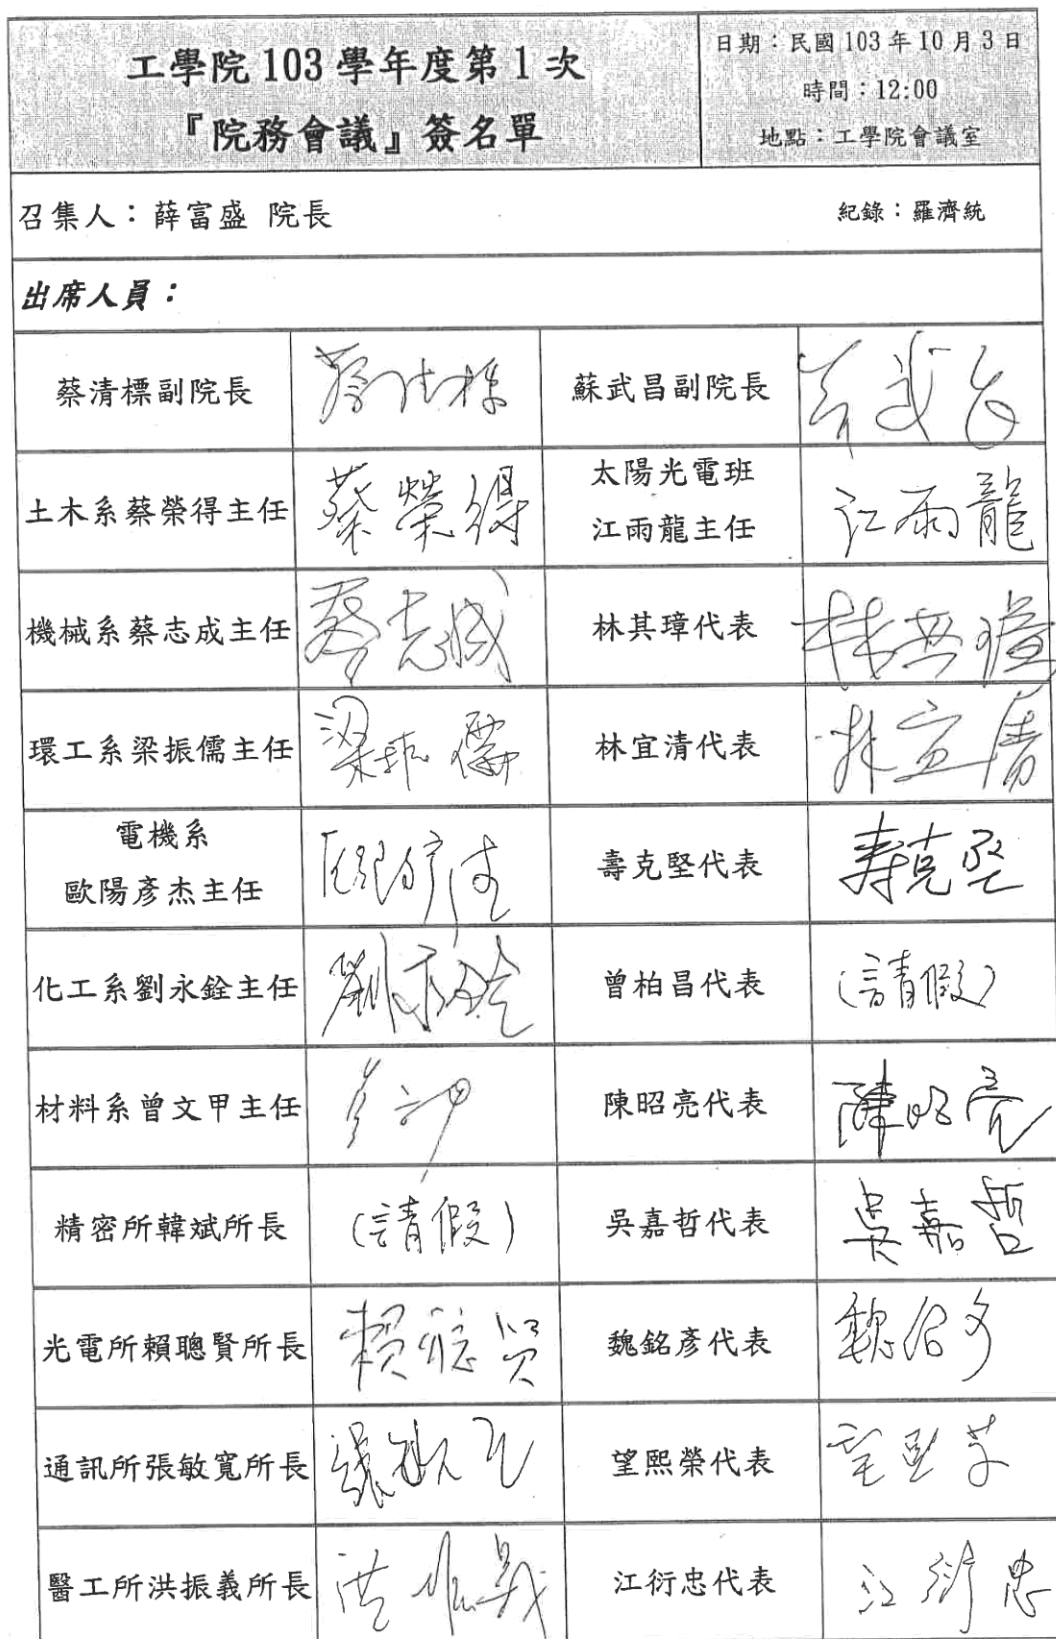 工學院 103 學年度第 1 次
『院務會議』簽名單
日期：民國 103 年 10 月 3 日
時間：12:00
地點：工學院會議室
召集人：薛富盛 院長
紀錄：羅濟統
出席人員：
蔡清標副院長
蔡清標
蘇武昌副院長
土木系蔡榮得主任
蔡榮得
太陽光電班
江雨龍主任
江雨龍
機械系蔡志成主任
蔡志成
林其璋代表
林其璋
環工系梁振儒主任
梁振儒
林宜清代表
林宜清
電機系
歐陽彥杰主任
壽克堅代表
寿克堅
化工系劉永銓主任
劉永銓
曾柏昌代表
(請假)
材料系曾文甲主任
陳昭亮代表
陳昭亮
精密所韓斌所長
(請假)
吳嘉哲代表
吳嘉哲
光電所賴聰賢所長
賴聰賢
魏銘彥代表
通訊所張敏寬所長
張敏寬
望熙榮代表
醫工所洪振義所長
洪振義
江衍忠代表
江衍忠